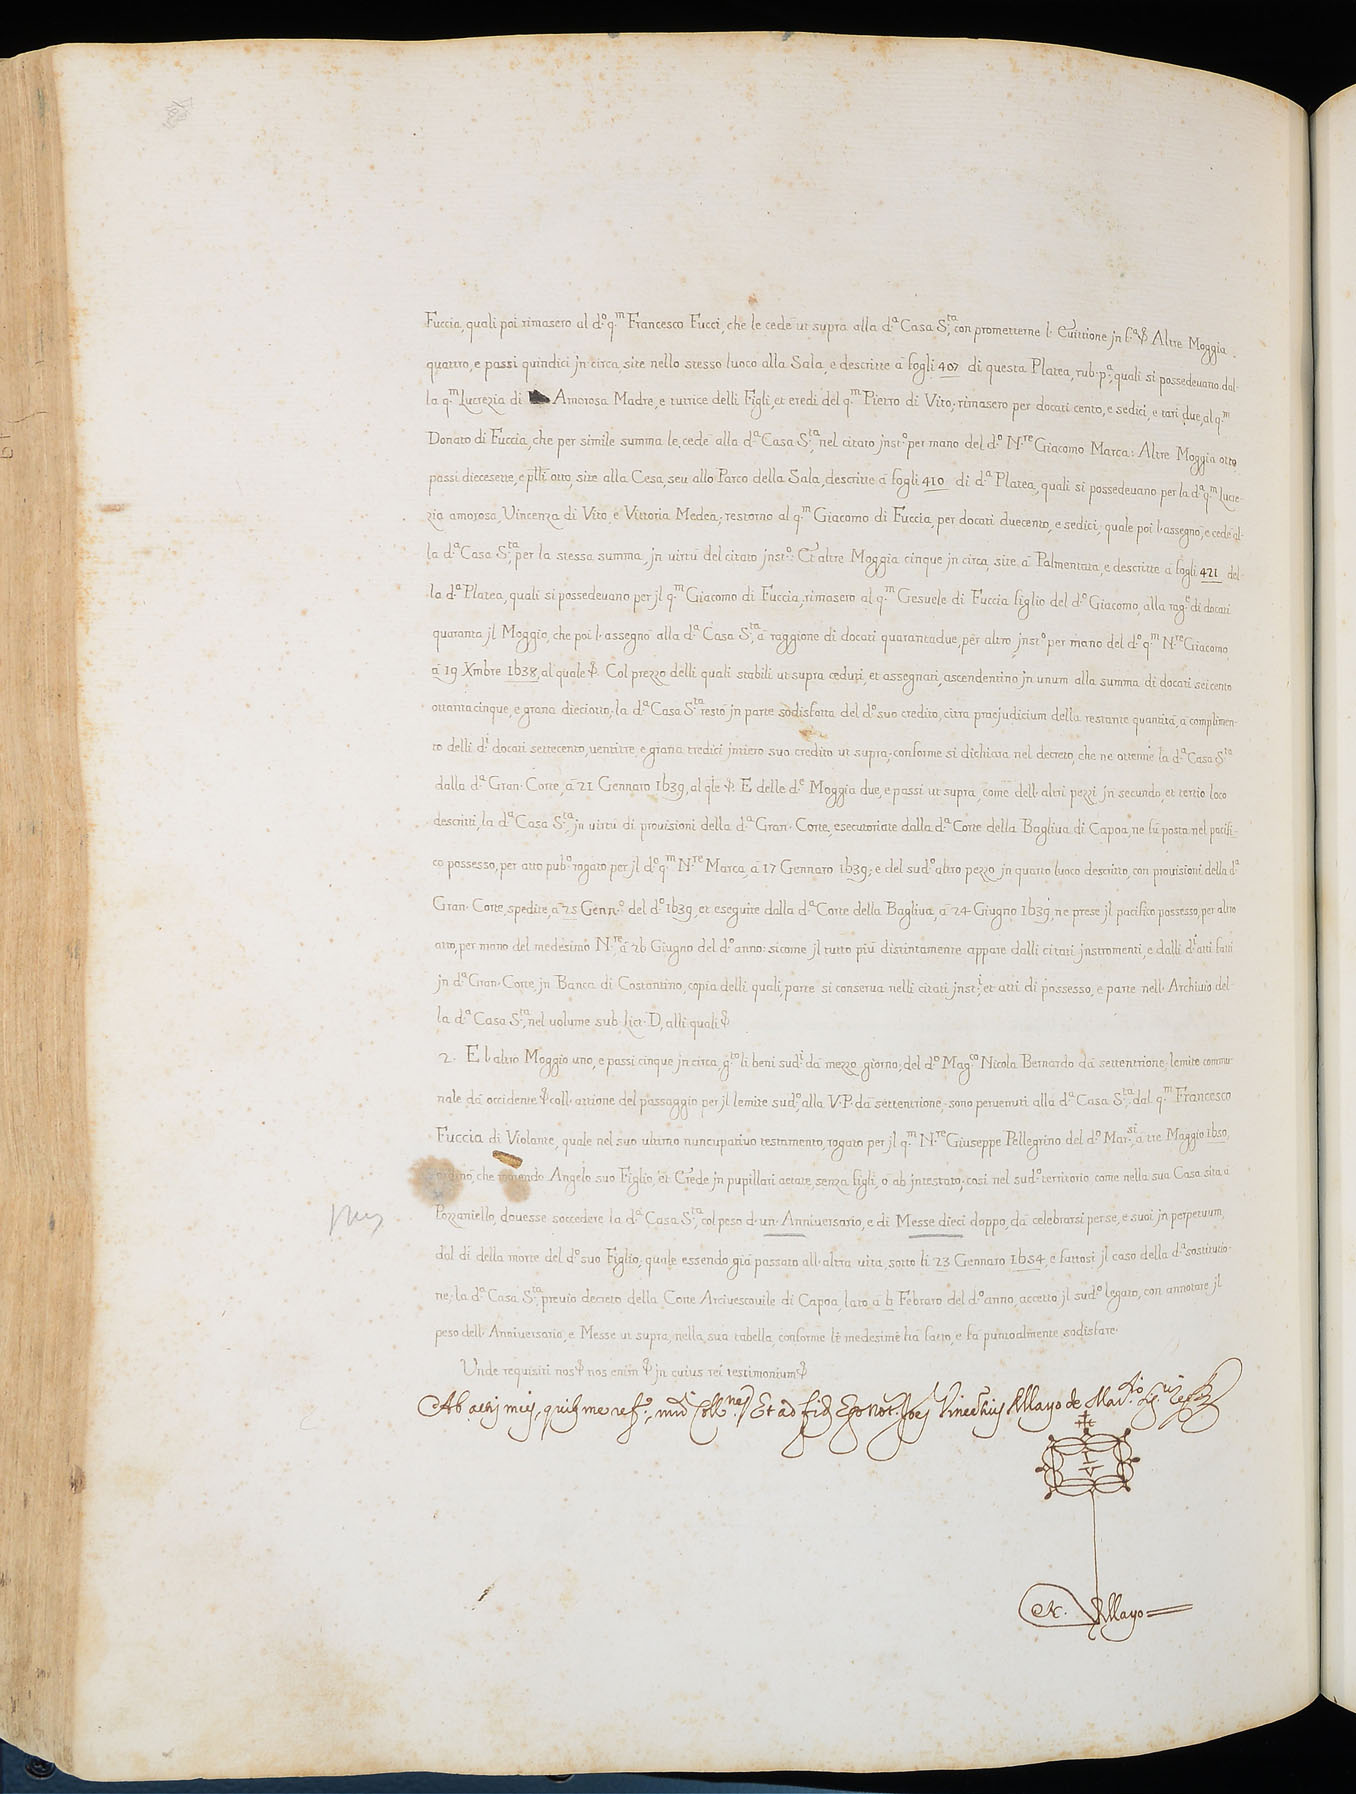 Fuccia, quali poi rimasero al d.º q.ᵐ Francesco Fucci, che le cedè ut supra alla d.ª Casa S.ᵗᵃ, con prometterne l'Euittione jn f.ª &. Altre Moggia
quattro, e passi quindici jn circa, site nello stesso luoco alla Sala, e descritte à fogli 407 di questa Platea, rub. p.ª, quali si possedeuano dal-
la q.ᵐ Lucrezia di Amorosa Madre, e tutrice delli Figli, et eredi del q.ᵐ Pietro di Vito, rimasero per docati cento, e sedici, e tari due, al q.ᵐ
Donato di Fuccia, che per simile summa le cedè alla d.ª Casa S.ᵗᵃ, nel citato jnst.º per mano del d.º N.ʳᵉ Giacomo Marca: Altre Moggia otto
passi diecesette, e p̃tti otto, site alla Cesa, seu allo Parco della Sala, descritte à fogli 410 di d.ª Platea, quali si possedeuano per la d.ª q.ᵐ Lucre-
zia amorosa, Vincenza di Vito, e Vittoria Medea, restorno al q.ᵐ Giacomo di Fuccia, per docati duecento, e sedici, quale poi l'assegnò, e cedè al-
la d.ª Casa S.ᵗᵃ, per la stessa summa, jn uirtù del citato jnst.º: Et altre Moggia cinque jn circa, site à Palmentata, e descritte à fogli 421 del-
la d.ª Platea, quali si possedeuano per jl q.ᵐ Giacomo di Fuccia, rimasero al q.ᵐ Gesuele di Fuccia figlio del d.º Giacomo, alla rag.ᵉ di docati
quaranta jl Moggio, che poi l'assegnò alla d.ª Casa S.ᵗᵃ, à raggione di docati quarantadue, per altro jnst.º per mano del d.º q.ᵐ N.ʳᵉ Giacomo
à 19 Xmbre 1638, al quale &. Col prezzo delli quali stabili ut supra ceduti, et assegnati, ascendentino jn unum alla summa di docati seicento
ottantacinque, e grana dieciotto, la d.ª Casa S.ᵗᵃ restò jn parte sodisfatta del d.º suo credito, citra praejudicium della restante quantità, à complimen-
to delli d.ⁱ docati settecento, uentitre, e grana tredici jntiero suo credito ut supra, conforme si dichiara nel decreto, che ne ottenne la d.ª Casa S.ᵗᵃ
dalla d.ª Gran Corte, à 21 Gennaro 1639, al q̃le &. E delle d.ᵉ Moggia due, e passi ut supra, come dell'altri pezzi jn secundo, et tertio loco
descritti, la d.ª Casa S.ᵗᵃ, jn uirtù di prouisioni della d.ª Gran Corte, esecutoriate dalla d.ª Corte della Bagliua di Capoa, ne fù posta nel pacifi-
co possesso, per atto pub.º rogato per jl d.º q.ᵐ N.ʳᵉ Marca, à 17 Gennaro 1639; e del sud.º altro pezzo jn quarto luoco descritto, con prouisioni della d.ª
Gran Corte, spedite, à 25 Genn.º del d.º 1639, et eseguite dalla d.ª Corte della Bagliua, à 24 Giugno 1639, ne prese jl pacifico possesso, per altro
atto, per mano del medesimo N.ʳᵉ, à 26 Giugno del d.º anno: sicome jl tutto più distintamente appare dalli citati jnstromenti, e dalli d.ⁱ atti fatti
jn d.ª Gran Corte, jn Banca di Costantino, copia delli quali, parte si conserua nelli citati jnst.ⁱ, et atti di possesso, e parte nell'Archiuio del-
la d.ª Casa S.ᵗᵃ, nel uolume sub lict. D, alli quali &
2. E l'altro Moggio uno, e passi cinque jn circa, g.ᵗᵒ li beni sud.ⁱ da mezzo giorno; del d.º Mag.ᶜᵒ Nicola Bernardo da settentrione; lemite commu-
nale da occidente & coll'attione del passaggio per jl lemite sud.º, alla V.P. da settentrione, sono peruenuti alla d.ª Casa S.ᵗᵃ, dal q.ᵐ Francesco
Fuccia di Violante, quale nel suo ultimo nuncupatiuo testamento, rogato per jl q.ᵐ N.ʳᵉ Giuseppe Pellegrino del d.º Mar.ˢⁱ, à tre Maggio 1650,
che morendo Angelo suo Figlio, et Erede jn pupillari aetate, senza figli, o ab jntestato, così nel sud.º territorio, come nella sua Casa sita à
Pozzaniello, douesse soccedere la d.ª Casa S.ᵗᵃ, col peso d'un Anniuersario, e di Messe dieci doppo, da celebrarsi per se, e suoi jn perpetuum,
dal dì della morte del d.º suo Figlio, quale essendo già passato all'altra uita, sotto li 23 Gennaro 1654, e fattosi jl caso della d.ª sostitutio-
ne, la d.ª Casa S.ᵗᵃ, preuio decreto della Corte Arciuescouile di Capoa, lato à 6 Febraro del d.º anno, accettò jl sud.º legato, con annotare jl
peso dell'Anniuersario, e Messe ut supra, nella sua tabella, conforme le medesime hà fatto, e fà puntoalmente sodisfare.
Unde requisiti nos & nos enim & jn cuius rei testimonium &
Ab actis meis, Et ad fid. Ego Not. Vincentius Allayo de
I
V
N. Allayo